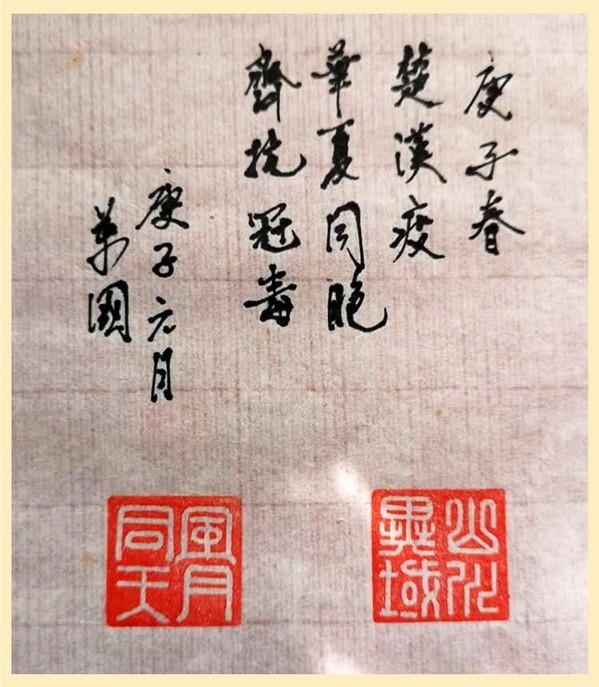 庚子春
楚漢疫
華夏同胞
齊抗冠毒
庚子元月
萬國
山川異域
風月同天